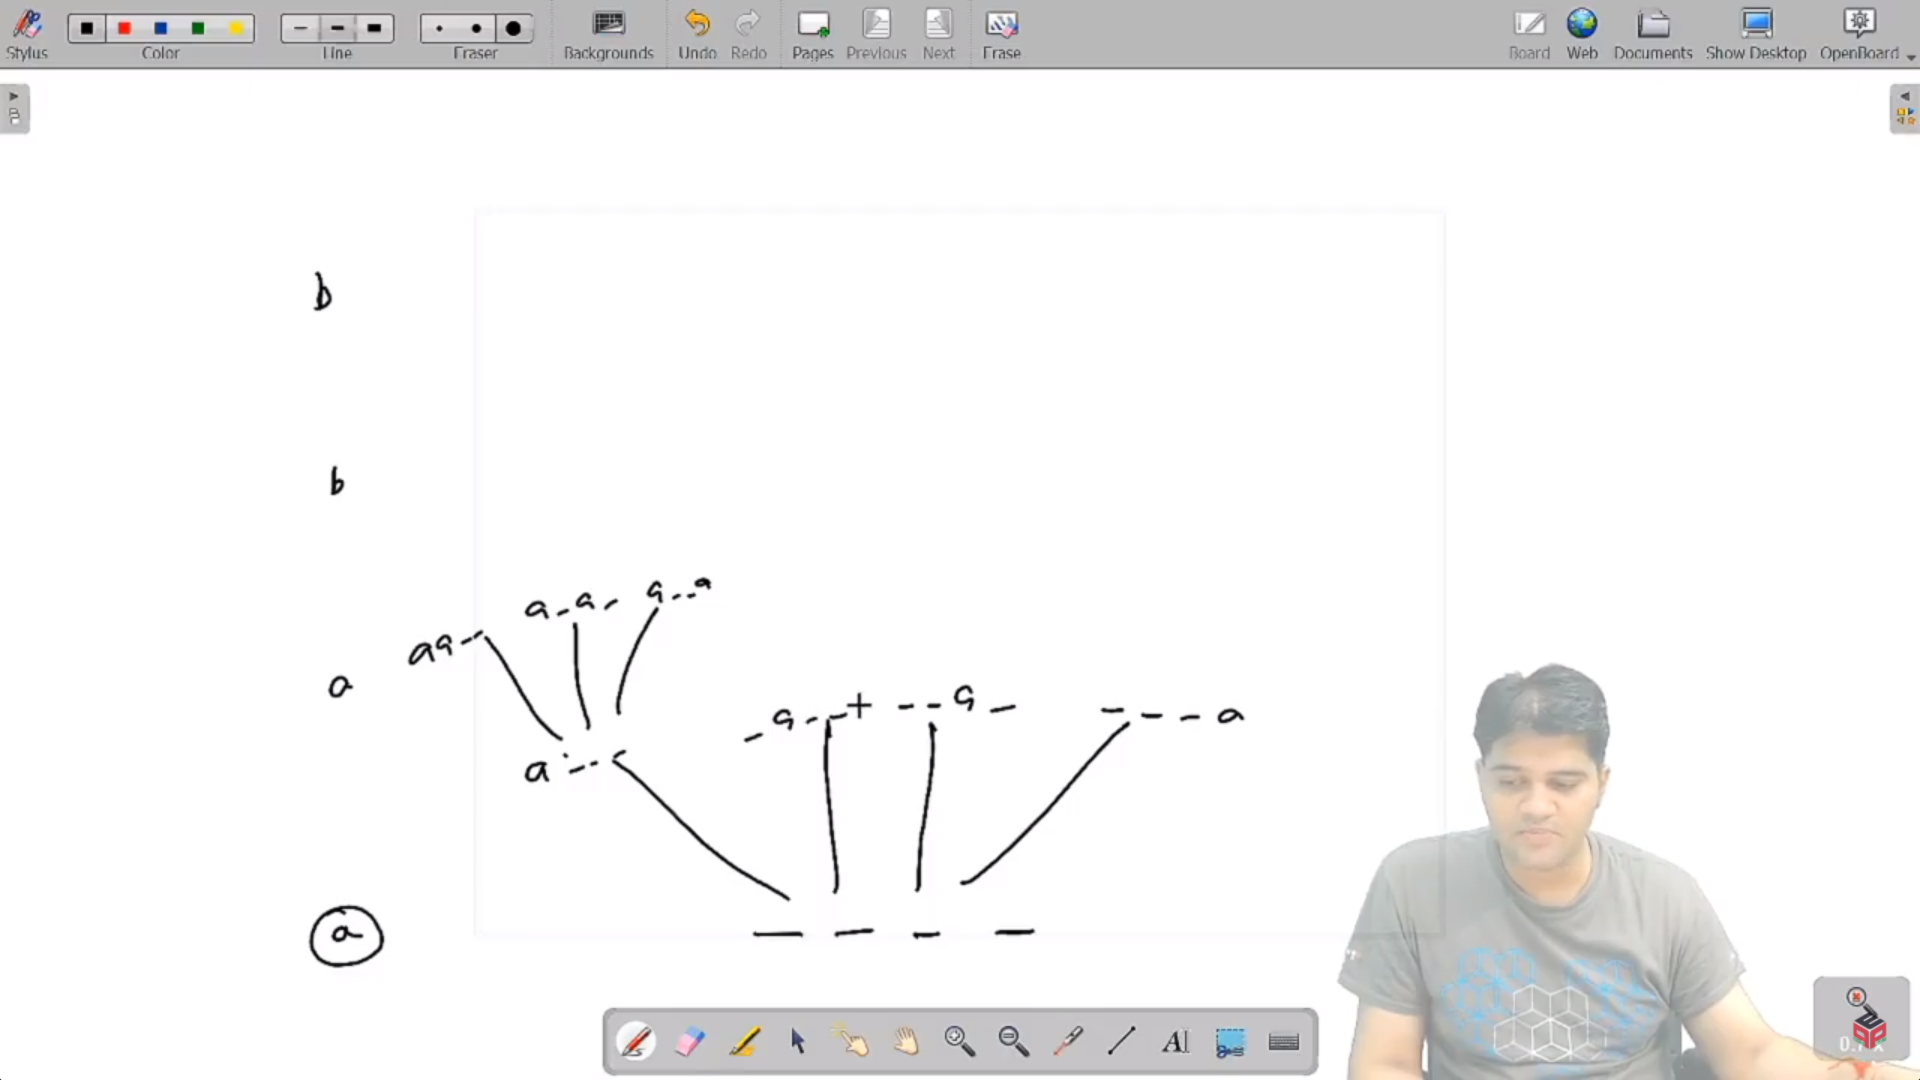 Stylus Color Line Eraser Backgrounds Undo Redo Pages Previous Next Erase Board Web Documents Show Desktop OpenBoard
b
b
a-a- a--a
aa--
a
-a--+ --a- ---a
a---
a
— — — —
AI